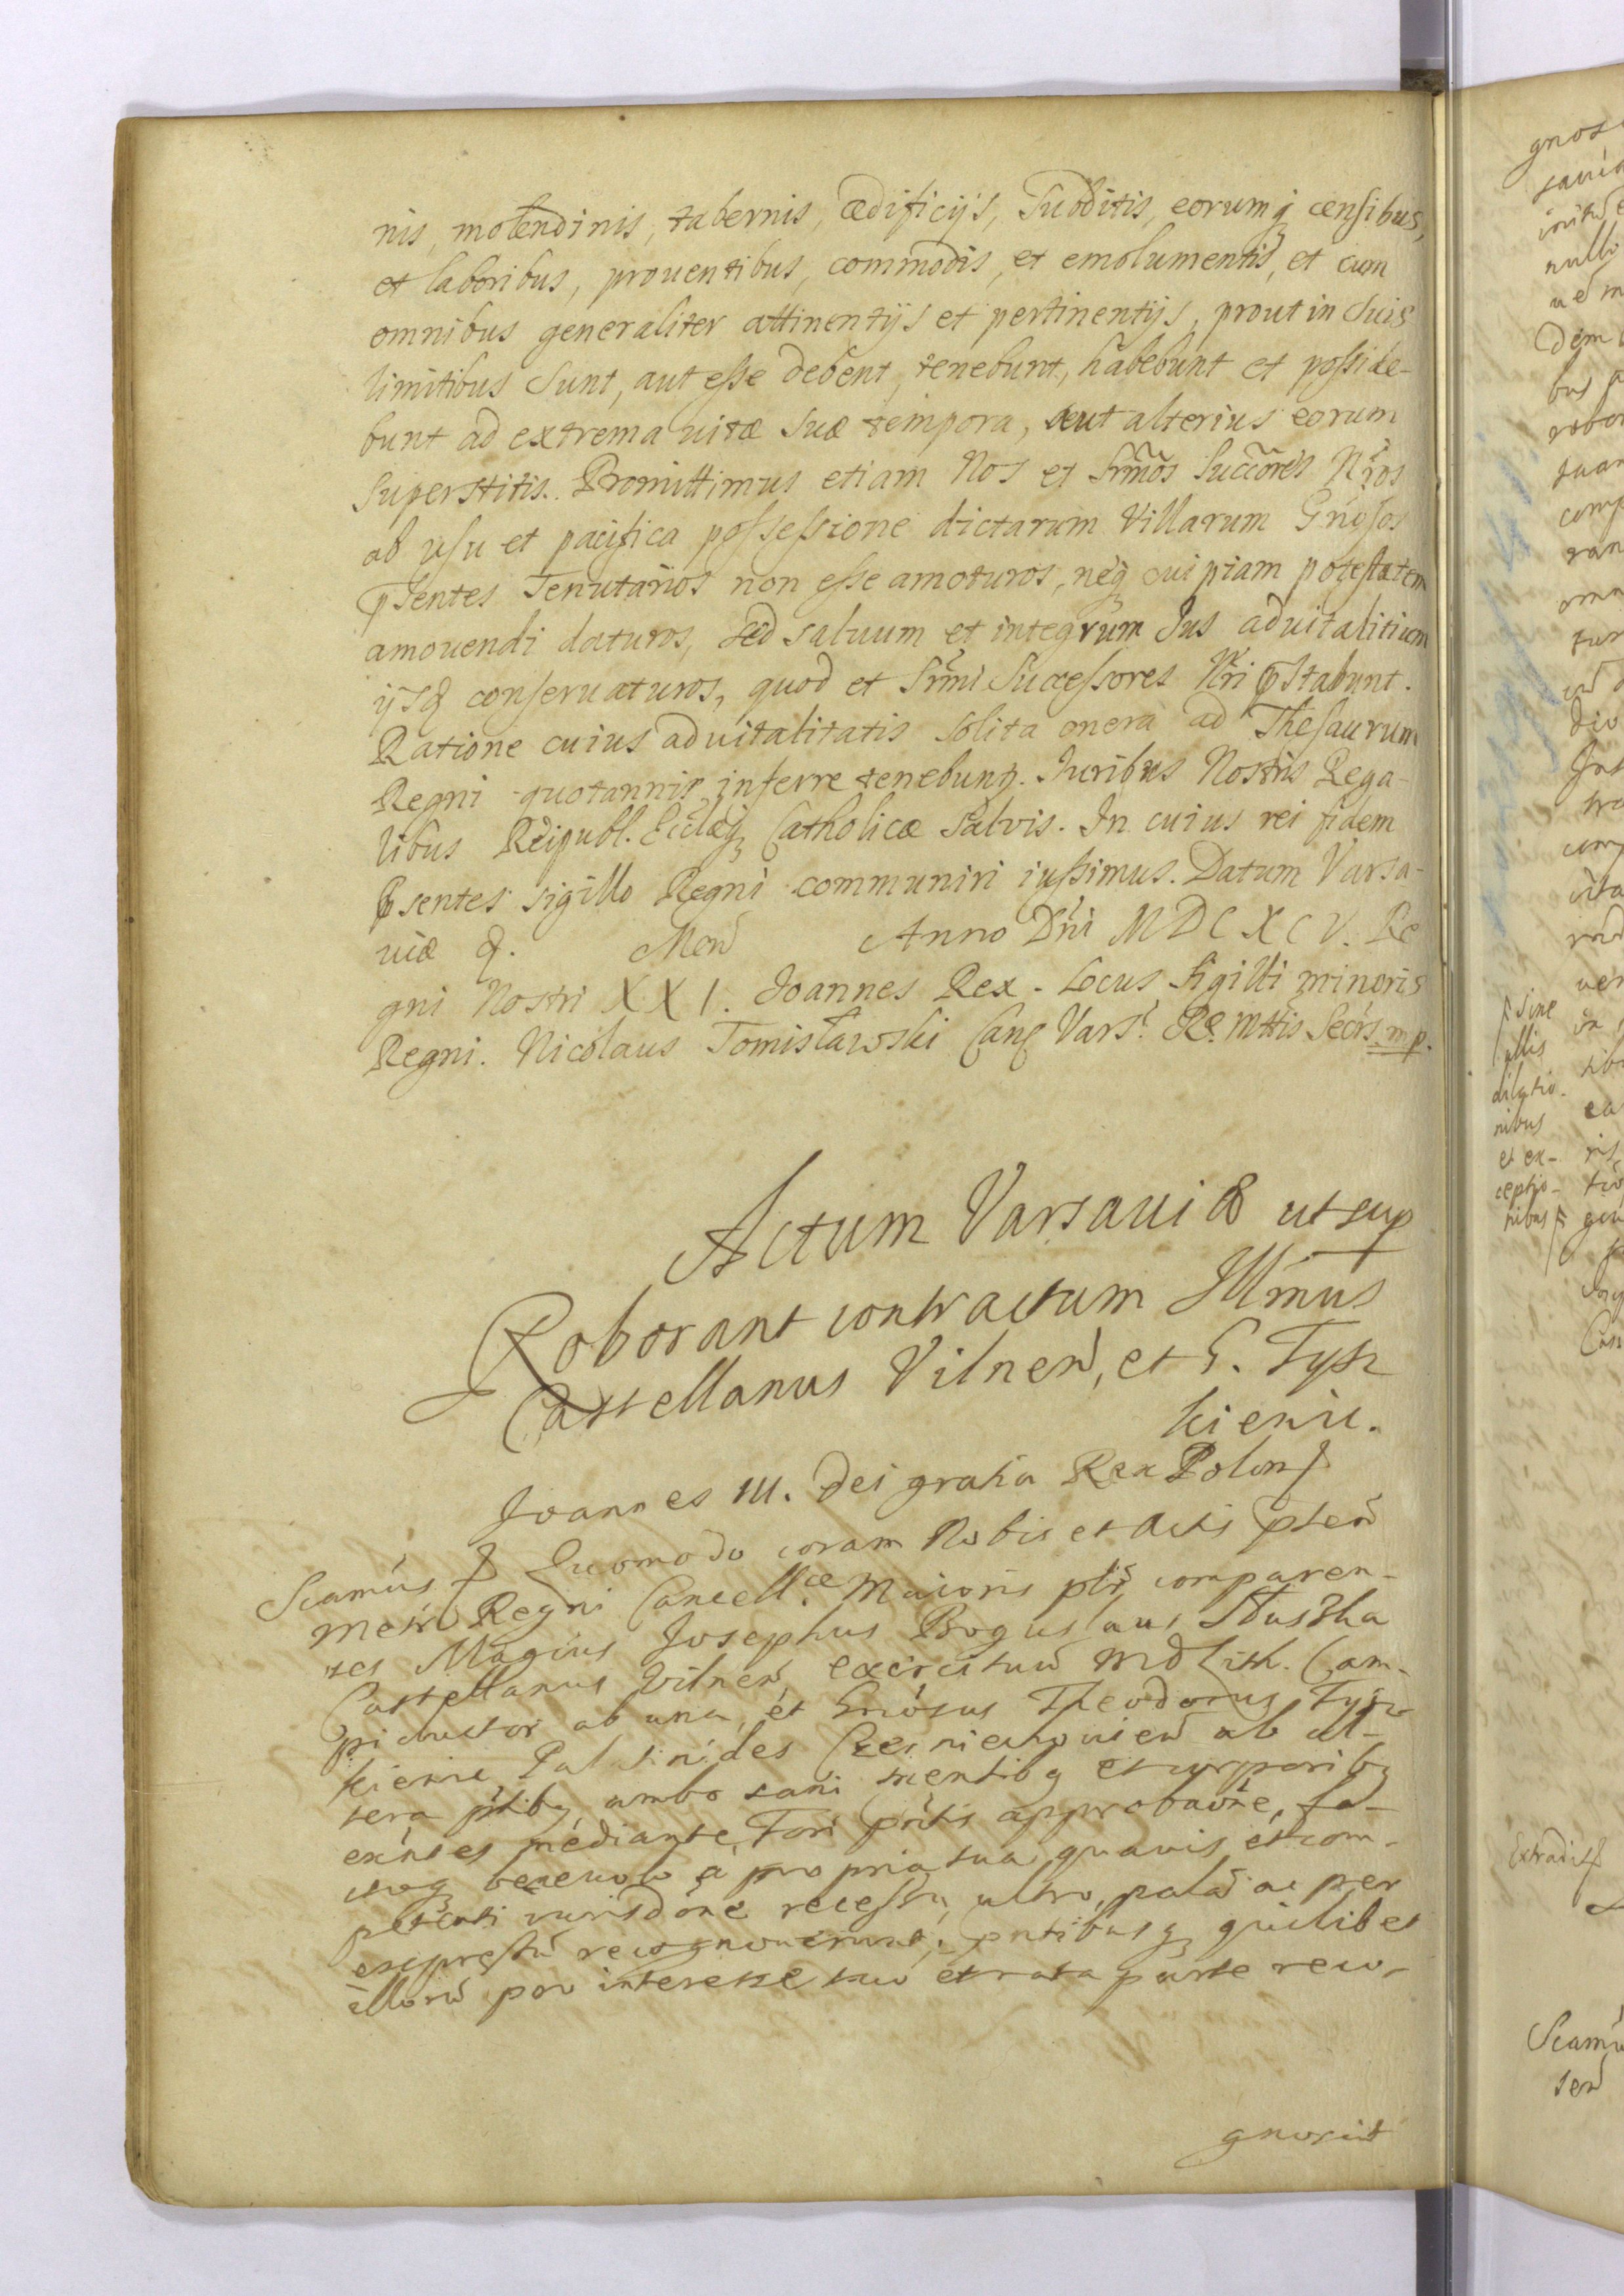 nis, molendinis, tabernis, ædificijs, Subditis, eorumq censibus,
et laboribus, prouentibus, commodis, et emolumentis, et cum
omnibus generaliter attinentijs et pertinentijs, prout in Suis
limitibus Sunt, aut esse debent, tenebunt, habebunt et posside-
bunt ad extrema uitæ Suæ tempora, seut alterius eorum
Superstitis. Promittimus etiam Nos et Srmõs Succõres Nrõs
ab usu et pacifica possessione dictarum Villarum Gnõsos
pSentes Tenutarios non esse amoturos, neq cuipiam potestatem
amouendi daturos, Sed saluum et integrum Jus aduitalitium
ijsd conseruaturos, quod et Srmi Successores Nri pStabunt.
Ratione cuius aduitalitatis solita onera ad Thesaurum
Regni quotannis inferre tenebunt. Juribus Nostris Rega-
libus Reipubl. Ecclæq Catholicæ Salvis. In cuius rei fidem
psentes sigillo Regni communiri iussimus. Datum Varsa-
uiæ d. Men Anno Dni MDCXCV. Re
gni Nostri XXI. Joannes Rex. Locus Sigilli minoris
Regni. Nicolaus Tomisławski Canc Vars. R. Mttis Secrs mp.
Actum Varsauiæ ut sup
Roborant contractum Illmus
Castellanus Vilnen, et G. Tysz
kieuic.
Joannes III. Dei gratia Rex Polon
Scamus Quomodo coram Nobis et Actis pten
Metr Regni Cancell.æ Maioris plr comparen-
tes Magcus Josephus Boguslaus Słuszka
Castellanus Vilnen, exercituu MD Lith. Cam-
piductor ab una, et Gnosus Theodorus Tysz
kieuic Palatinides ab al-
tera ptibq ambo sani mentibq et corporibq
exntes mediante Fori pntis approbaone, fa-
ctoq beneuolo a propria sua quauis et com-
petenti iurisdone recessu, ultro, pala ac per
expressu recognouerunt; pntibusq quilibet
illoru pro interesse suo et rata parte reco-
gnoscit